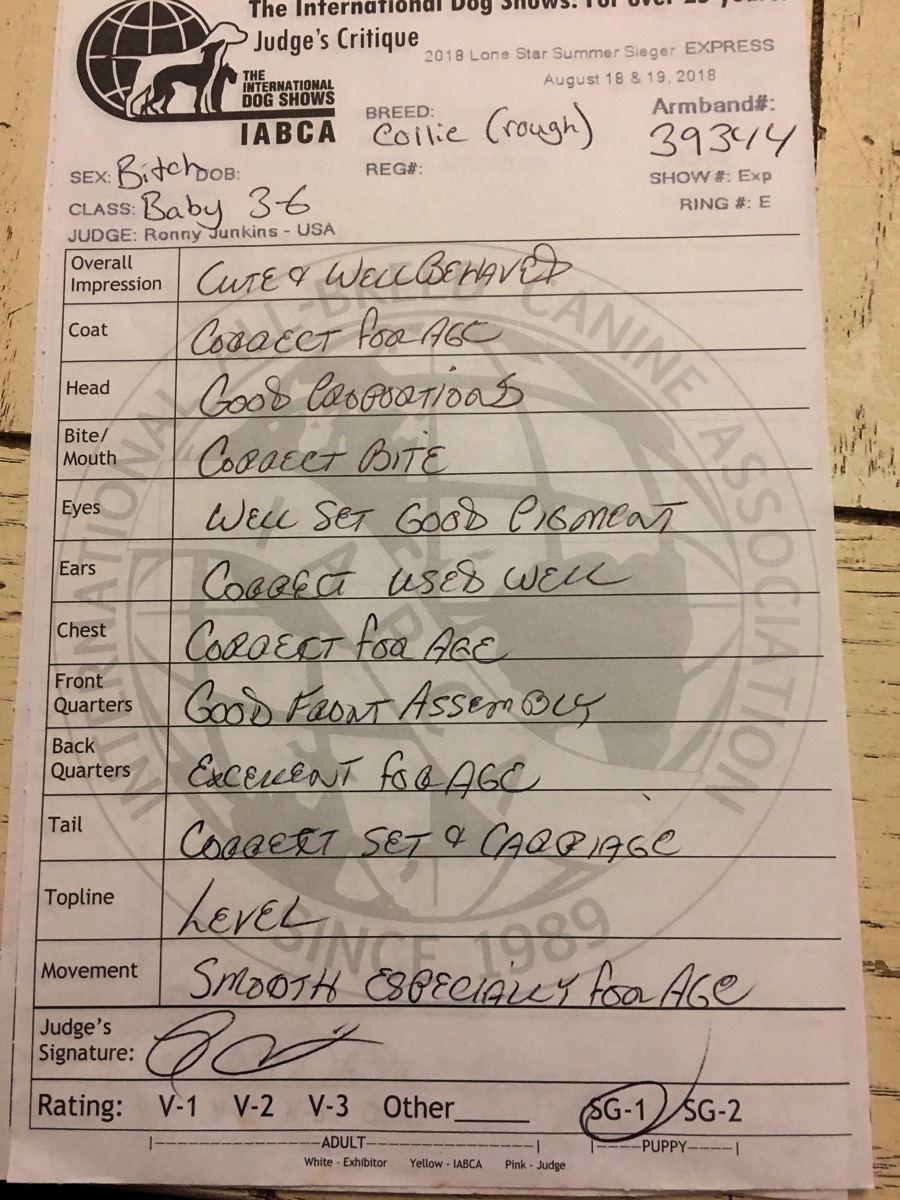 The International Dog Shows: For over 25 years.
Judge's Critique
2018 Lone Star Summer Sieger EXPRESS
August 18 & 19, 2018
THE
INTERNATIONAL
DOG SHOWS
IABCA
BREED:
Collie (rough)
Armband#:
39344
SEX: Bitch DOB:
REG#:
SHOW #: Exp
CLASS: Baby 3-6
RING #: E
JUDGE: Ronny Junkins - USA
Overall
Impression
CUTE & WELL BEHAVED
Coat
CORRECT FOR AGE
Head
GOOD PROPORTIONS
Bite/
Mouth
CORRECT BITE
Eyes
WELL SET GOOD PIGMENT
Ears
CORRECT USED WELL
Chest
CORRECT FOR AGE
Front
Quarters
GOOD FRONT ASSEMBLY
Back
Quarters
EXCELLENT FOR AGE
Tail
CORRECT SET & CARRIAGE
Topline
LEVEL
Movement
SMOOTH ESPECIALLY FOR AGE
Judge's
Signature:
Rating: V-1 V-2 V-3 Other_____ SG-1 SG-2
|-----ADULT-----| |-----PUPPY-----|
White - Exhibitor Yellow - IABCA Pink - Judge
INTERNATIONAL ALL-BREED CANINE ASSOCIATION
IABCA
SINCE 1989